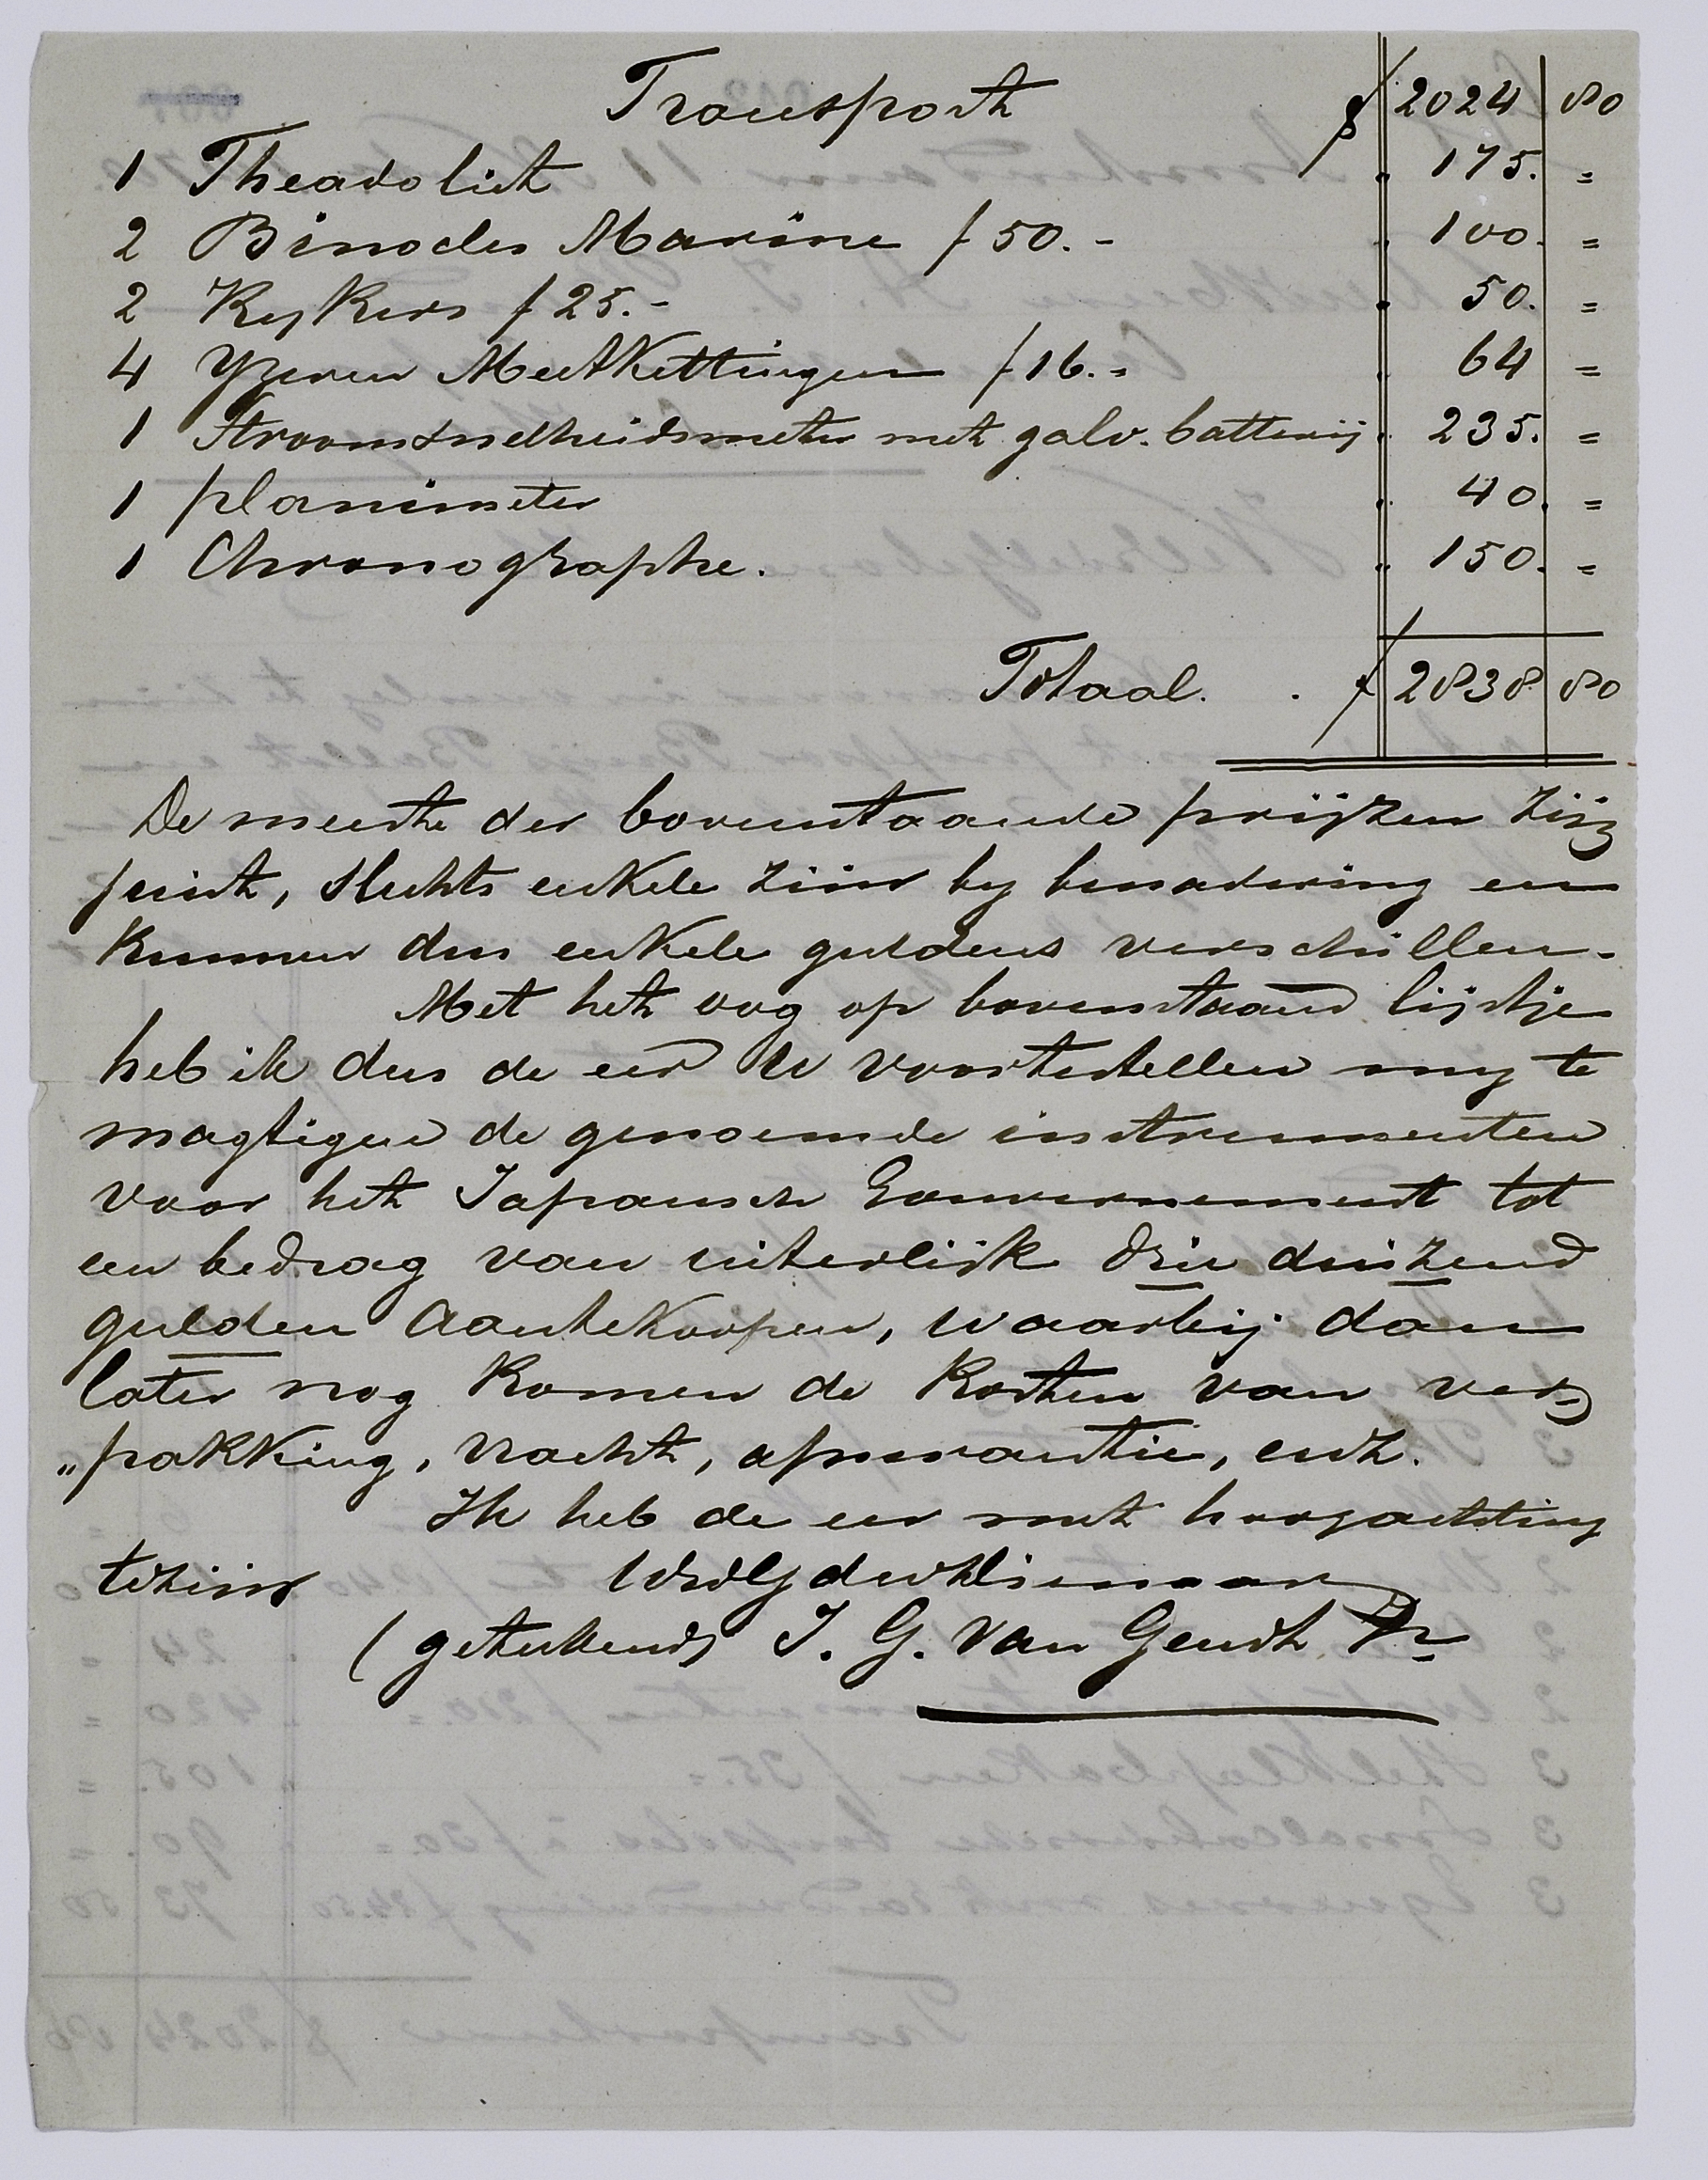 Transport f 2024 80
1 Theadoliet „ 175. =
2 Binocles Marine f 50.- „ 100. =
2 Kijkers f 25.- „ 50. =
4 Yzeren Meetkettingen f 16.= „ 64 =
1 Stroomsnelheidsmeter met galv. batterij „ 235. =
1 planimeter „ 40. =
1 Chronographe. „ 150. =
Totaal. . f 2838 80
De meeste der bovenstaande prijzen zijn
juist, slechts enkele zijn by benadering en
kunnen dus enkele guldens verschillen.
Met het oog op bovenstaand lijstje
heb ik dus de eer U voortestellen my te
magtigen de genoemde instrumenten
voor het Japansch Gouvernement tot
een bedrag van uiterlijk drie duizend
gulden aantekoopen, waarbij dan
later nog komen de kosten van ver=
„pakking, vracht, assurantie, enz.
Ik heb de eer met hoogachting
tezijn UwEdgdwDienaar
(getekend) J. G. van Gendt Jr